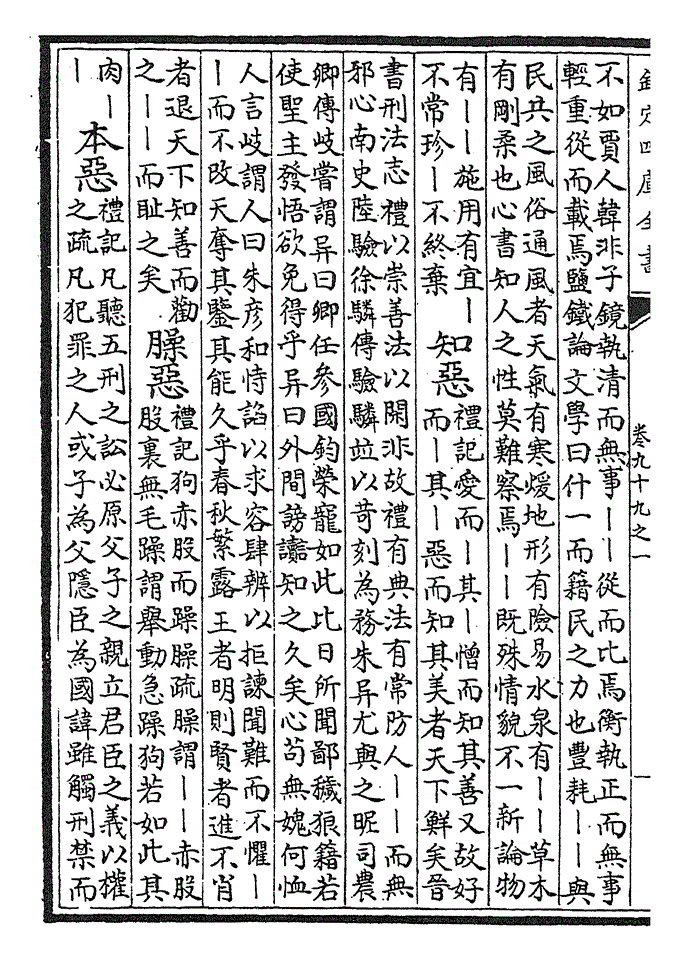 欽定四庫全書
卷九十九之一
一
不如賈人韓非子鏡執清而無事丨丨從而比焉衡執正而無事
輕重從而載焉鹽鐵論文學曰什一而籍民之力也豐耗丨丨與
民共之風俗通風者天氣有寒煖地形有險易水泉有丨丨草木
有剛柔也心書知人之性莫難察焉丨丨既殊情貌不一新論物
有丨丨施用有宜丨
不常珍丨不終棄
知惡
禮記愛而丨其丨憎而知其善又故好
而丨其丨惡而知其美者天下鮮矣晉
書刑法志禮以崇善法以閑非故禮有典法有常防人丨丨而無
邪心南史陸驗徐驎傳驗驎竝以苛刻為務朱异尤與之昵司農
卿傳岐嘗謂异曰卿任參國鈞榮寵如此比日所聞鄙穢狼籍若
使聖主發悟欲免得乎异曰外間謗讟知之久矣心苟無媿何恤
人言岐謂人曰朱彦和恃諂以求容肆辨以拒諫聞難而不懼丨
丨而不改天奪其鑒其能久乎春秋繁露王者明則賢者進不肖
者退天下知善而勸
之丨丨而耻之矣
臊惡
禮記狗赤股而躁臊疏臊謂丨丨赤股
股裏無毛躁謂舉動急躁狗若如此其
肉丨
丨
本惡
禮記凡聽五刑之訟必原父子之親立君臣之義以權
之疏凡犯罪之人或子為父隱臣為國諱雖觸刑禁而